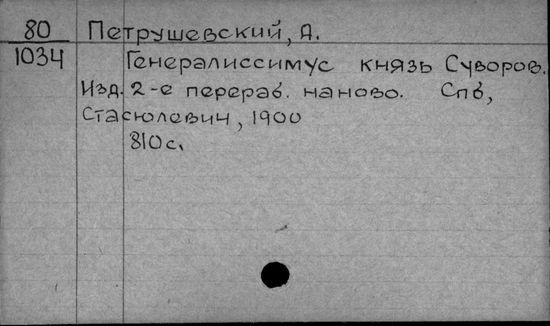 80 Петрушевский, А.
1034 Генералиссимус князь Суворов.
Изд. 2-е перераб. наново. Спб,
Стасюлевич, 1900
810 с.